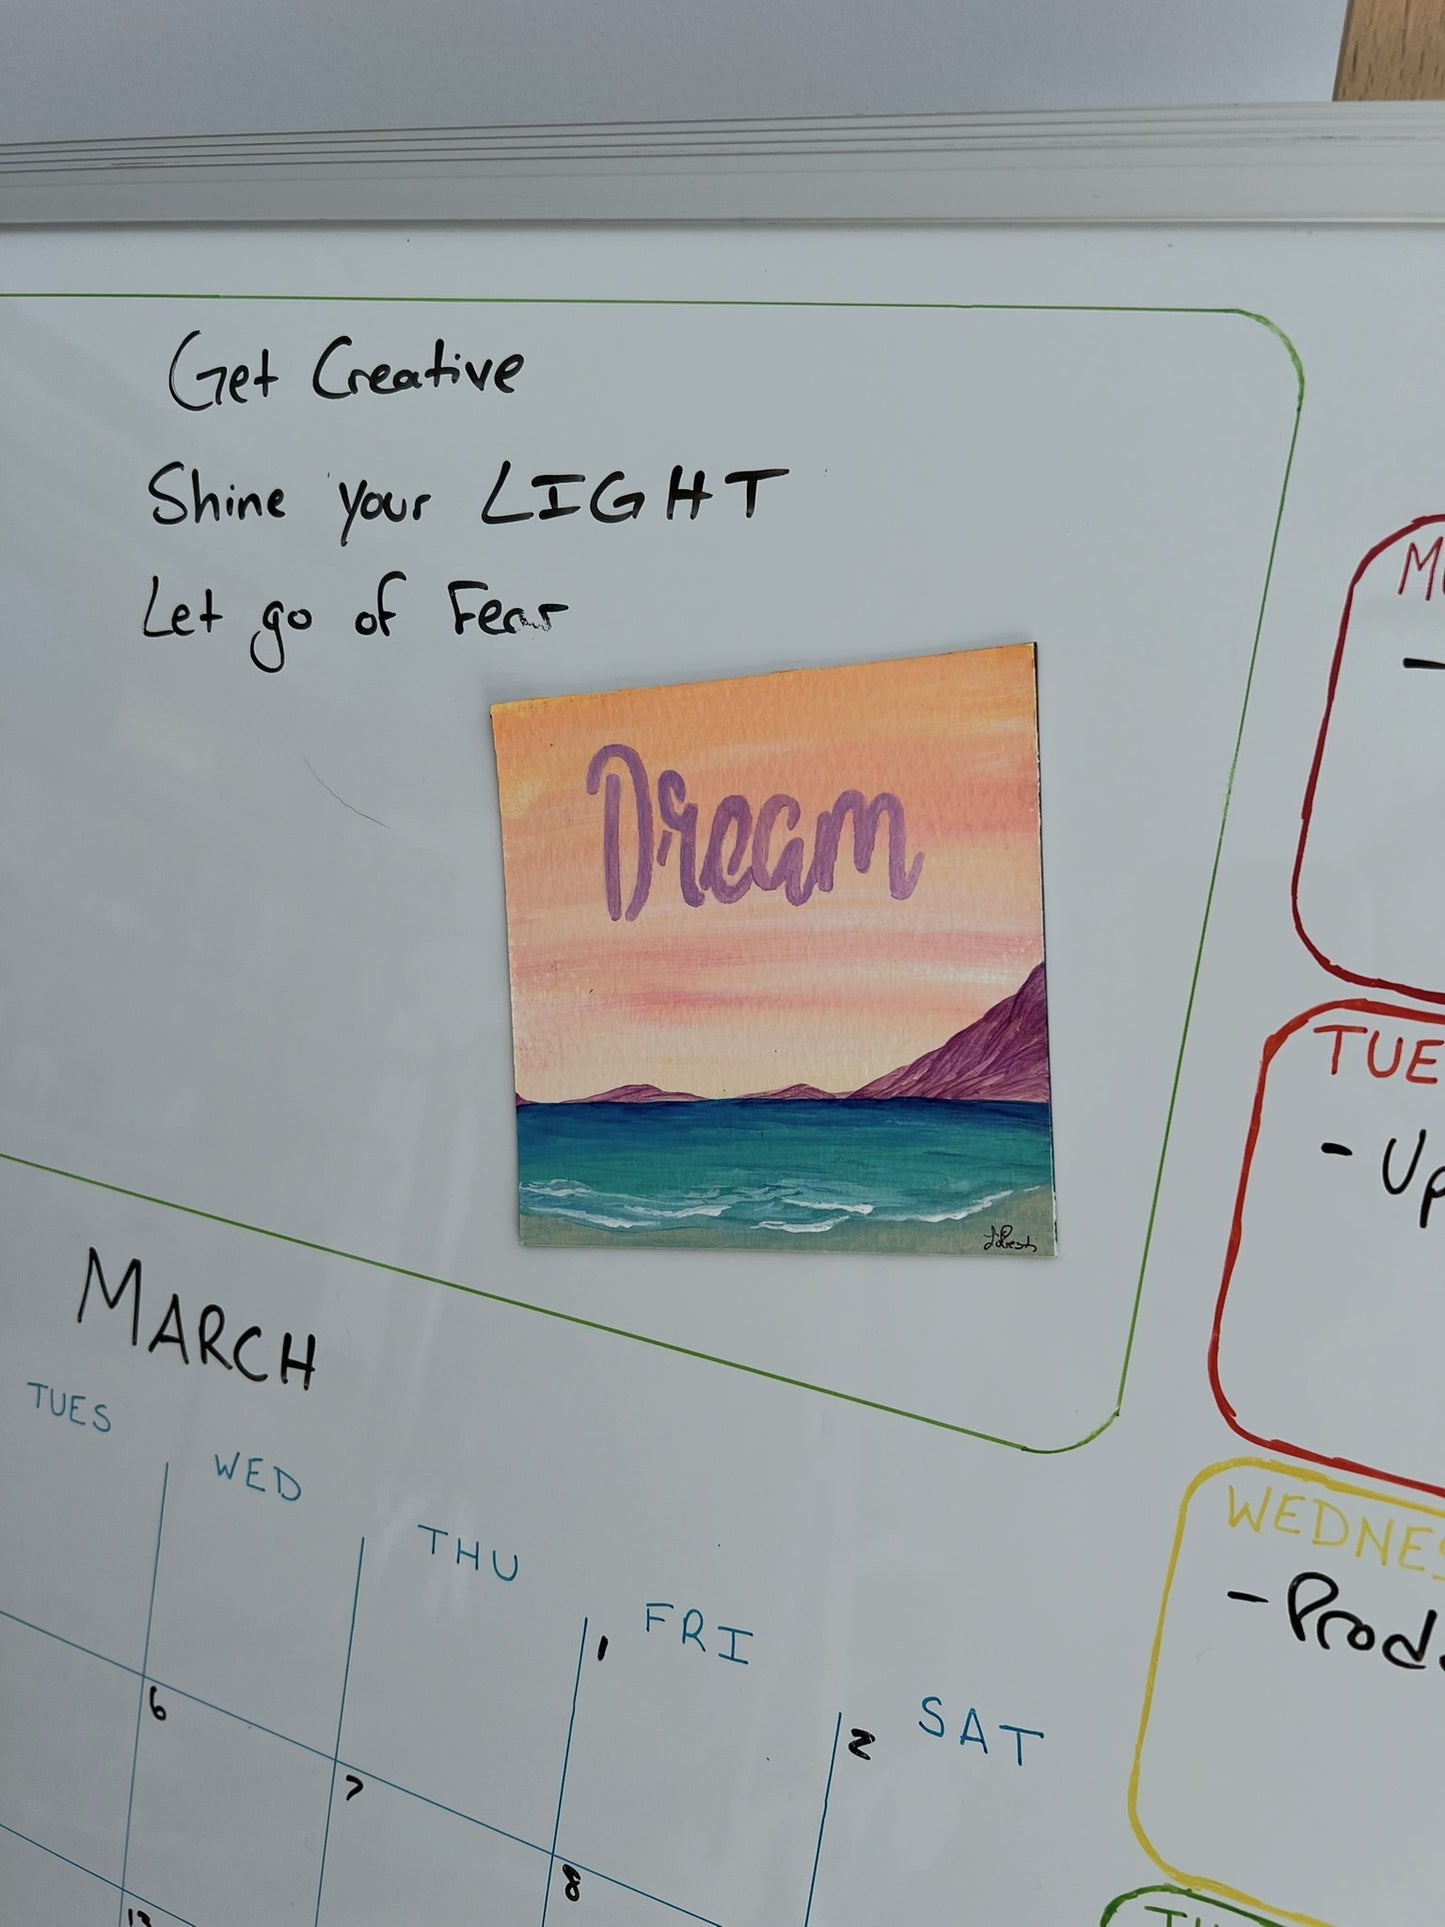 Get Creative
Shine your LIGHT
Let go of Fear
Dream
MARCH
TUES WED THU FRI SAT
1 2
6 7 8
13
TUE
- Up
WEDNES
- Prod